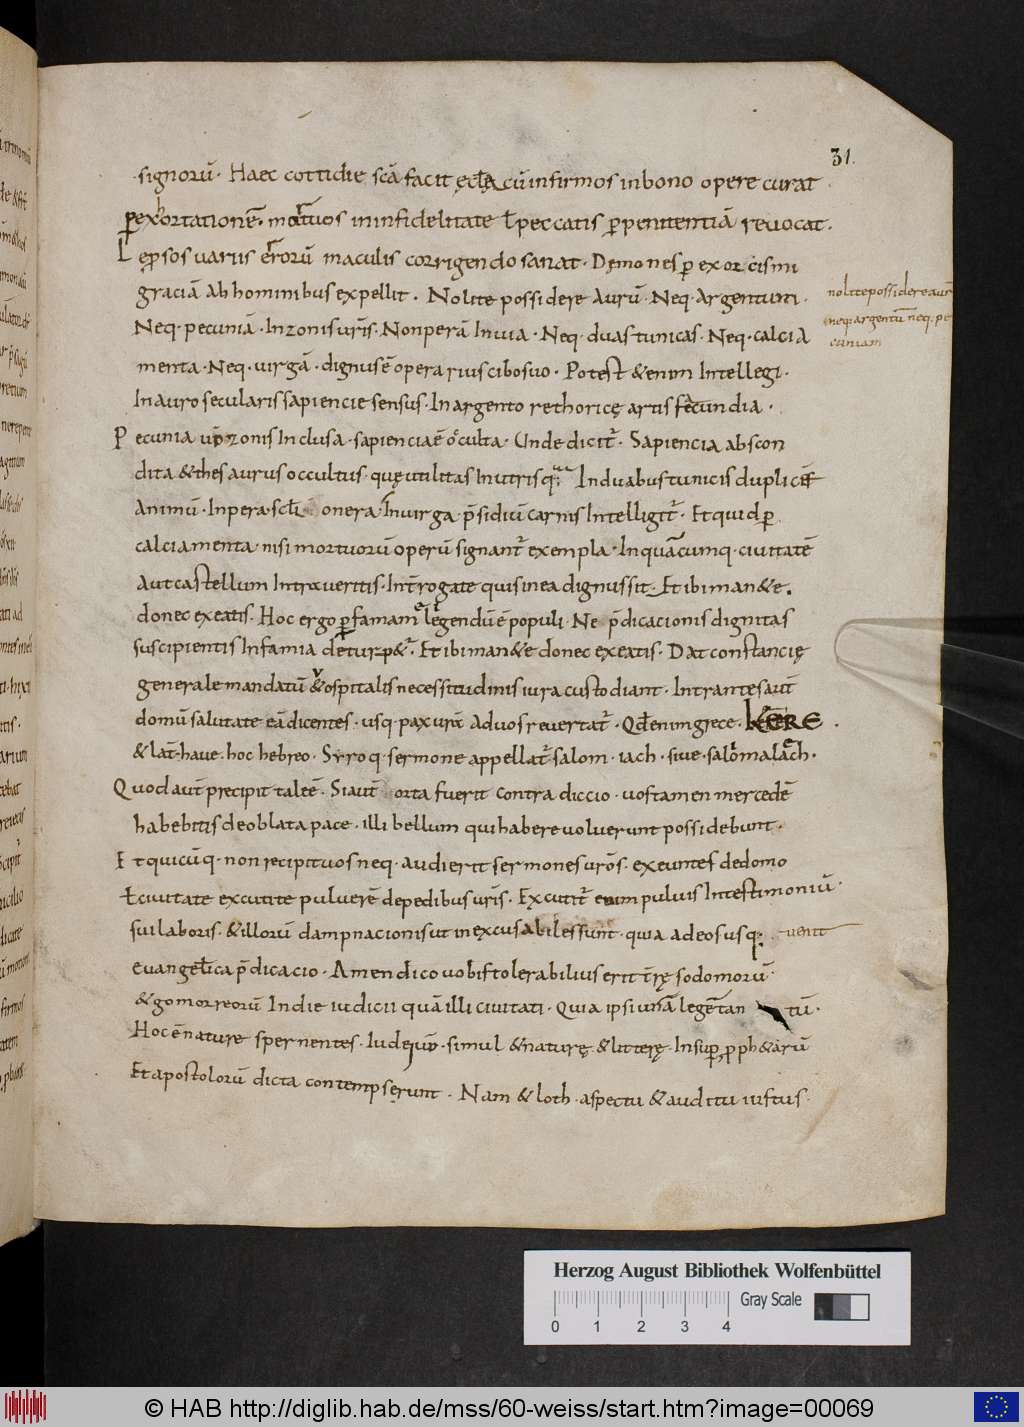 31.
signorū· Haec cottidie scā facit ęclęa cū infirmos in bono opere curat
per exhortationē· mortuos in infidelitate ł peccatis p penitentiā revocat.
Lęp̄sos variis errorū maculis corrigendo sanat· Dęmones p̄ exorcismi
graciā ab hominibus expellit. Nolite possidere aurū· Neq· Argentum·
Neq· pecuniā· In zonis ur̄is· Non perā In via· Neq· duas tunicas· Neq· calcia
menta· Neq· virgā· dignus ē operarius cibo suo· Potest & enim Intellegi·
In auro secularis sapiencie sensus· In argento rethoricę artis fecundia·
Pecunia u̅ zonis Inclusa· sapiencia ē occulta· Unde dicit̄· Sapiencia abscon
dita & thesaurus occultus· quę utilitas In utrisq· In duabus tunicis duplicē
Animū· In pera· scl̄i onera· In virga p̄sidiū carnis Intelligit̄· Et quid p̄
calciamenta· nisi mortuorū operū signant̄ exempla· In quācumq· civitatē
Aut castellum Intraveritis· Int̄rogate quis in ea dignus sit· Et ibi man&e·
donec exeatis· Hoc ergo p̄ famam elegendū ē populi· Ne p̄dicacionis dignitas
suscipientis Infamia deturp&̄· Et ibi man&e donec exeatis· Dat constancię
generale mandatū & ospitalis necessitudinis iura custodiant· Intrantes aut̄
domū salutate eā dicentes· usq· pax ur̄a Ad vos revertat̄· Qd̄ enim grece· KERE·
& lat· have· hoc hebreo· Syroq· sermone appellat̄ salom· iach· sive· salomalach·
Quod aut̄ precipit tale ē· Si aut̄ orta fuerit contradiccio· vos tamen mercedē
habebitis de oblata pace· illi bellum qui habere voluerunt possidebunt·
Et quicūq· non recipit vos neq· audierit sermones ur̄os· exeuntes de domo
ł civitate excutite pulverē de pedibus ur̄is· Excutit̄ enim pulvis In testimoniū·
sui laboris· & illorū dampnacionis ut inexcusabiles sunt· quia ad eos usq; venit
evangelica p̄dicacio· Amen dico vobis tolerabilius erit tr̄ę sodomorū·
& gomorreorū In die iudicii quā illi civitati· Quia ipsi unā legē tan tū·
Hoc ē nature spernentes· Iudei u̅· simul & naturę & litterę· Insup̄ proph&arū
Et apostolorū dicta contempserunt· Nam & loth· aspectu & auditu iustus·
nolite possidere aur̄
neq· argentū neq· pe
cuniam
Herzog August Bibliothek Wolfenbüttel
Gray Scale
0 1 2 3 4
© HAB http://diglib.hab.de/mss/60-weiss/start.htm?image=00069